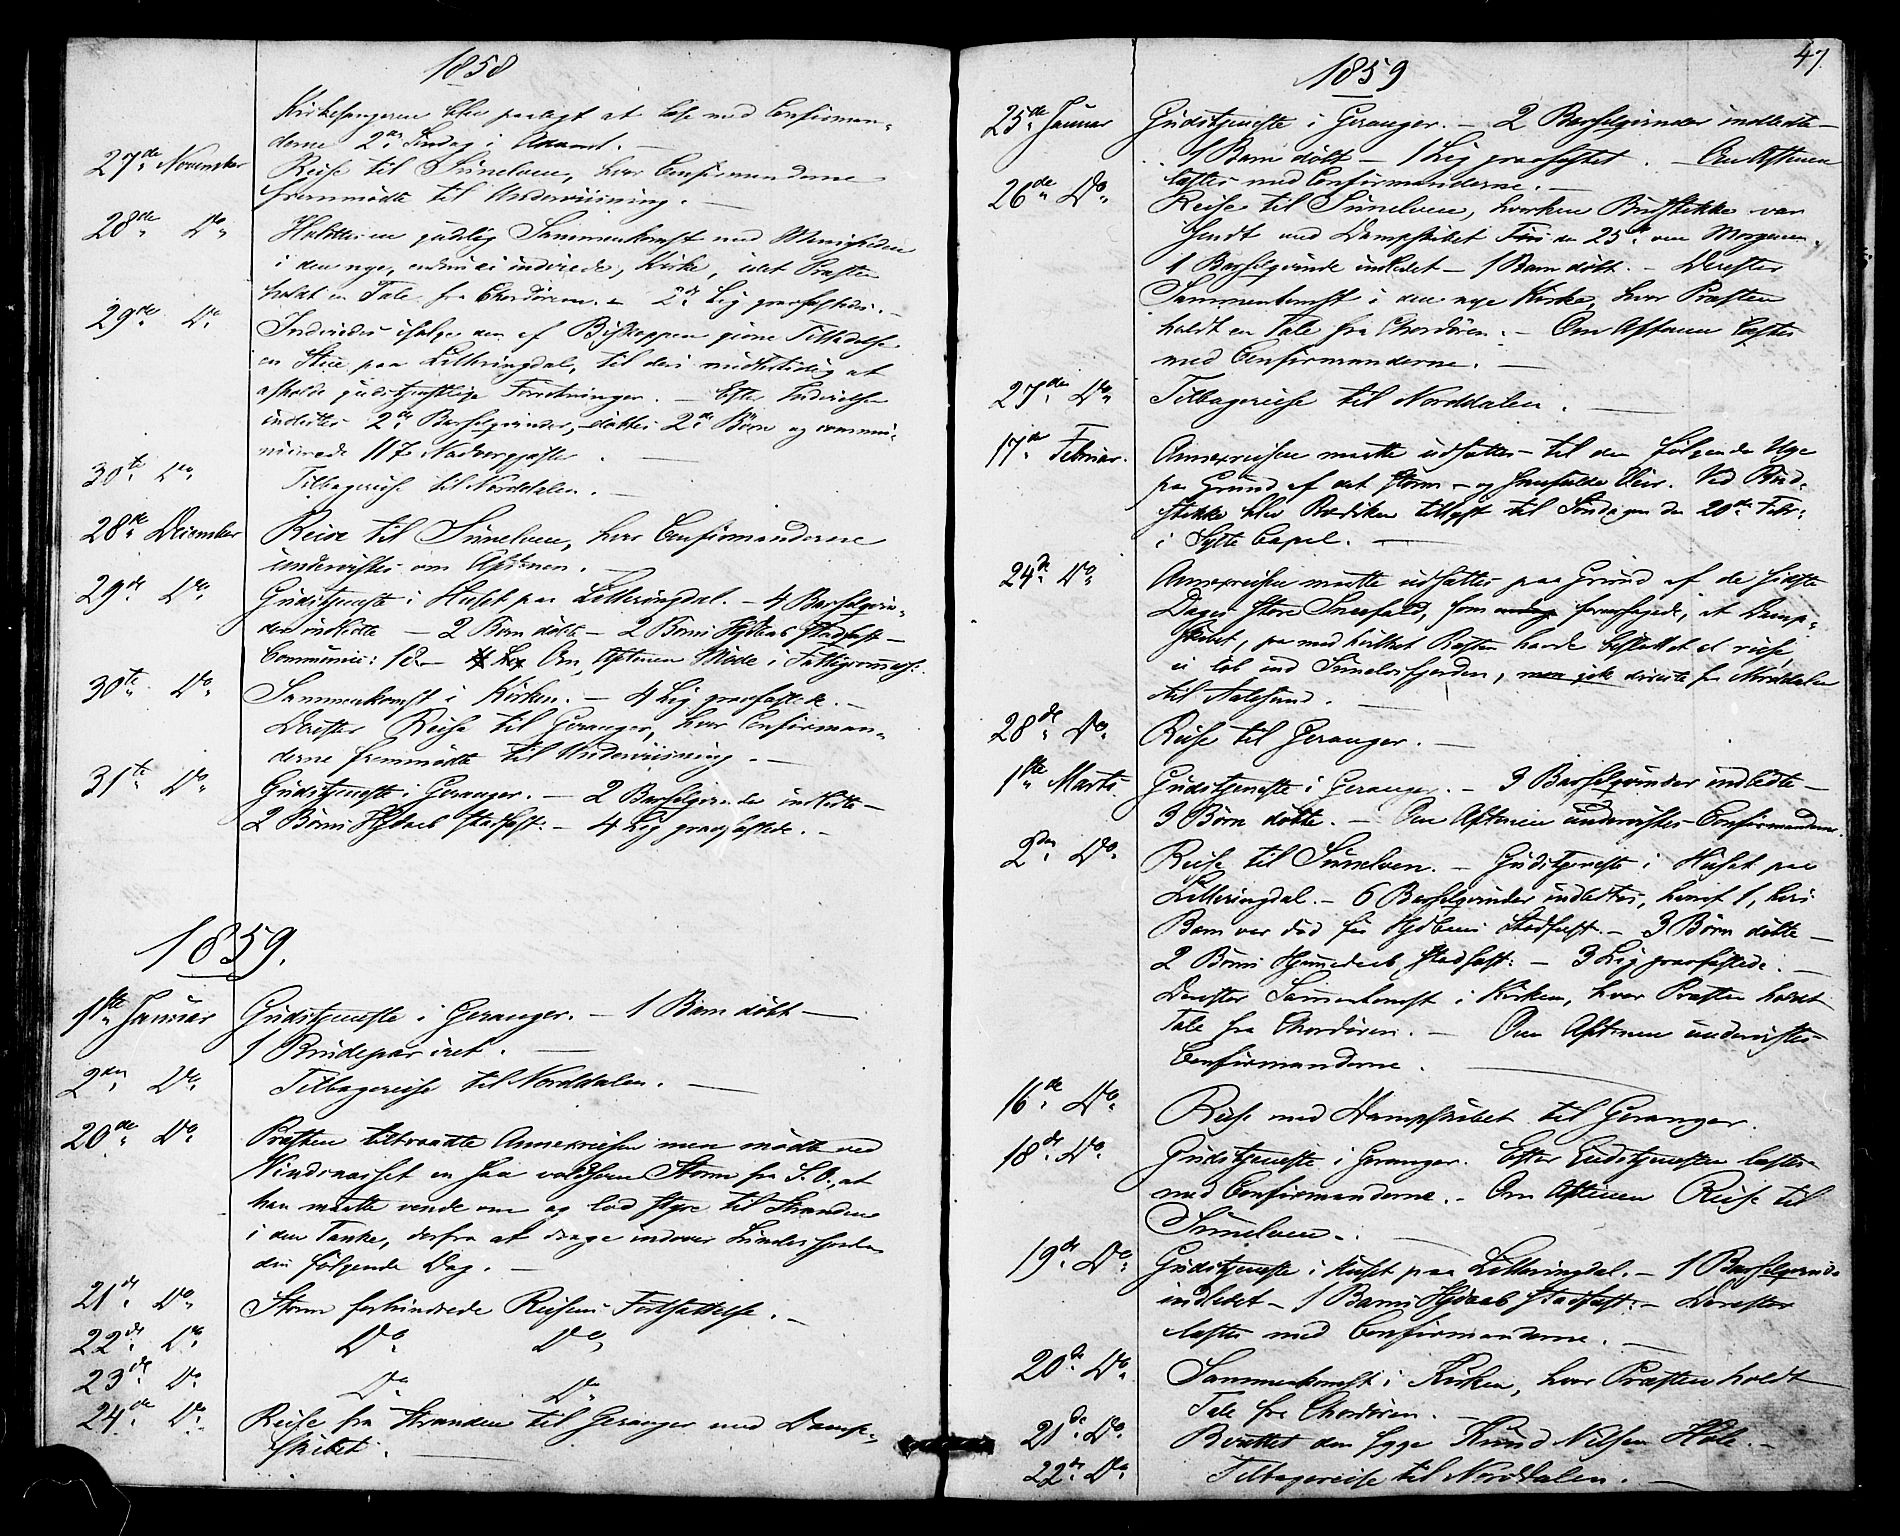 1858
Kirkesangeren blev paalagt at læse med Confirman-
derne 2den Søndag i Advent. —
27de November Reise til Sunelven, hvor Confirmanderne
fremmødte til Underviisning. —
28de Do Holdt en gudelig Sammenkomst med Menigheden
i den nye, endnu ei indviede, Kirke, idet Præsten
holdt en Tale fra Chordøren. — 2de Lig graafæstede. —
29de Do Indviedes ifølge den af Biskoppen givne Tilladelse
en Stue paa Lilleringdal, til deri midlertidig at
afholde gudstjenstlige Forretninger. — Efter Indvielsen
indledtes 2de Barselqvinder, døbtes 2de Børn og commu-
nicerede 117 Nadvergjæster. —
30te Do Tilbagereise til Norddalen. —
28de December Reise til Sunelven, hvor Confirmanderne
undervistes om Aftenen. —
29de Do Gudstjeneste i Huset paa Lilleringdal. — 4 Barselqvin-
der indledte — 2 Børn døbte — 2 Børns Hjdaab stadfæst —
Communic: 18 — Om Aftenen Møde i Fattigcomss:
30te Do Sammenkomst i Kirken. — 4 Lig graafæstede. —
Derefter Reise til Geranger, hvor Confirman-
derne fremmødte til Underviisning. —
31te Do Gudstjeneste i Geranger. — 2 Barselqvinder indledte —
2 Børns Hjdaab stadfæst: — 4 Lig graafæstede. —
1859.
1ste Januar Gudstjeneste i Geranger. — 1 Barn døbt —
1 Brudepar viet. —
2den Do Tilbagereise til Norddalen. —
20de Do Præsten tiltraadte Annexreisen men mødte ved
Vindsnæsset en saa voldsom Storm fra S.O., at
han maatte vende om og lod styre til Stranden
i den Tanke, derfra at drage indover
den følgende Dag. —
21de Do Storm forhindrede Reisens Fortsættelse. —
22de Do Do Do
23de Do Do Do
24de Do Reise fra Stranden til Geranger med Damp-
skibet. —
47.
1859
25de Januar Gudstjeneste i Geranger. — 2 Barselqvinder indledte —
1 Barn døbt — 1 Lig graafæstet. — Om Aftenen
læstes med Confirmanderne. —
26de Do Reise til Sunelven, hvorhen Budstikke var
sendt med Dampskibet den 25de om Morgenen.
1 Barselqvinde indledet — 1 Barn døbt. — Derefter
Sammenkomst i den nye Kirke, hvor Præsten
holdt en Tale fra Chordøren. — Om Aftenen læstes
med Confirmanderne. —
27de Do Tilbagereise til Norddalen. —
17de Februar. Annexreisen maatte udsættes til den følgende Uge
paa Grund af det storm- og sneefulde Veir. Ved Bud-
stikke blev Prædiken tillyst til Søndagen den 20de Febr:
i Sylte Capel. —
24de Do Annexreisen maatte udsættes paa Grund af de sidste
Dages store Sneefald, som foraarsagede, at Damp-
skibet, paa med hvilket Præsten havde besluttet at reise
ei løb ind Sunelvsfjorden, men gik directe fra Norddalen
til Aalesund. —
28de Do Reise til Geranger. —
1ste Marts Gudstjeneste i Geranger. — 3 Barselqvinder indledte —
3 Børn døbte. — Om Aftenen undervistes Confirmanderne.
2den Do Reise til Sunelven. — Gudstjeneste i Huset paa
Lilleringdal. — 6 Barselqvinder indledtes, hvoraf 1, hvis
Barn var død før Hjdbens Stadfæst. — 3 Børn døbte —
2 Børns Hjemedaab stadfæst: — 3 Lig graafæstede. —
Derefter Sammenkomst i Kirken, hvor Præsten holdt
Tale fra Chordøren. — Om Aftenen undervistes
Confirmanderne. —
16de Do Reise med Dampskibet til Geranger.
18de Do Gudstjeneste i Geranger. Efter Gudstjenesten læstes
med Confirmanderne. — Om Aftenen Reise til
Sunelven. —
19de Do Gudstjeneste i Huset paa Lilleringdal. — 1 Barselqvinde
indledet — 1 Barns Hjdaab stadfæst: — Derefter
læstes med Confirmanderne. —
20de Do Sammenkomst i Kirken, hvor Præsten holdt
Tale fra Chordøren. —
21de Do Berettet den syge Knud Nilsen Hole. —
22de Do Tilbagereise til Norddalen. —